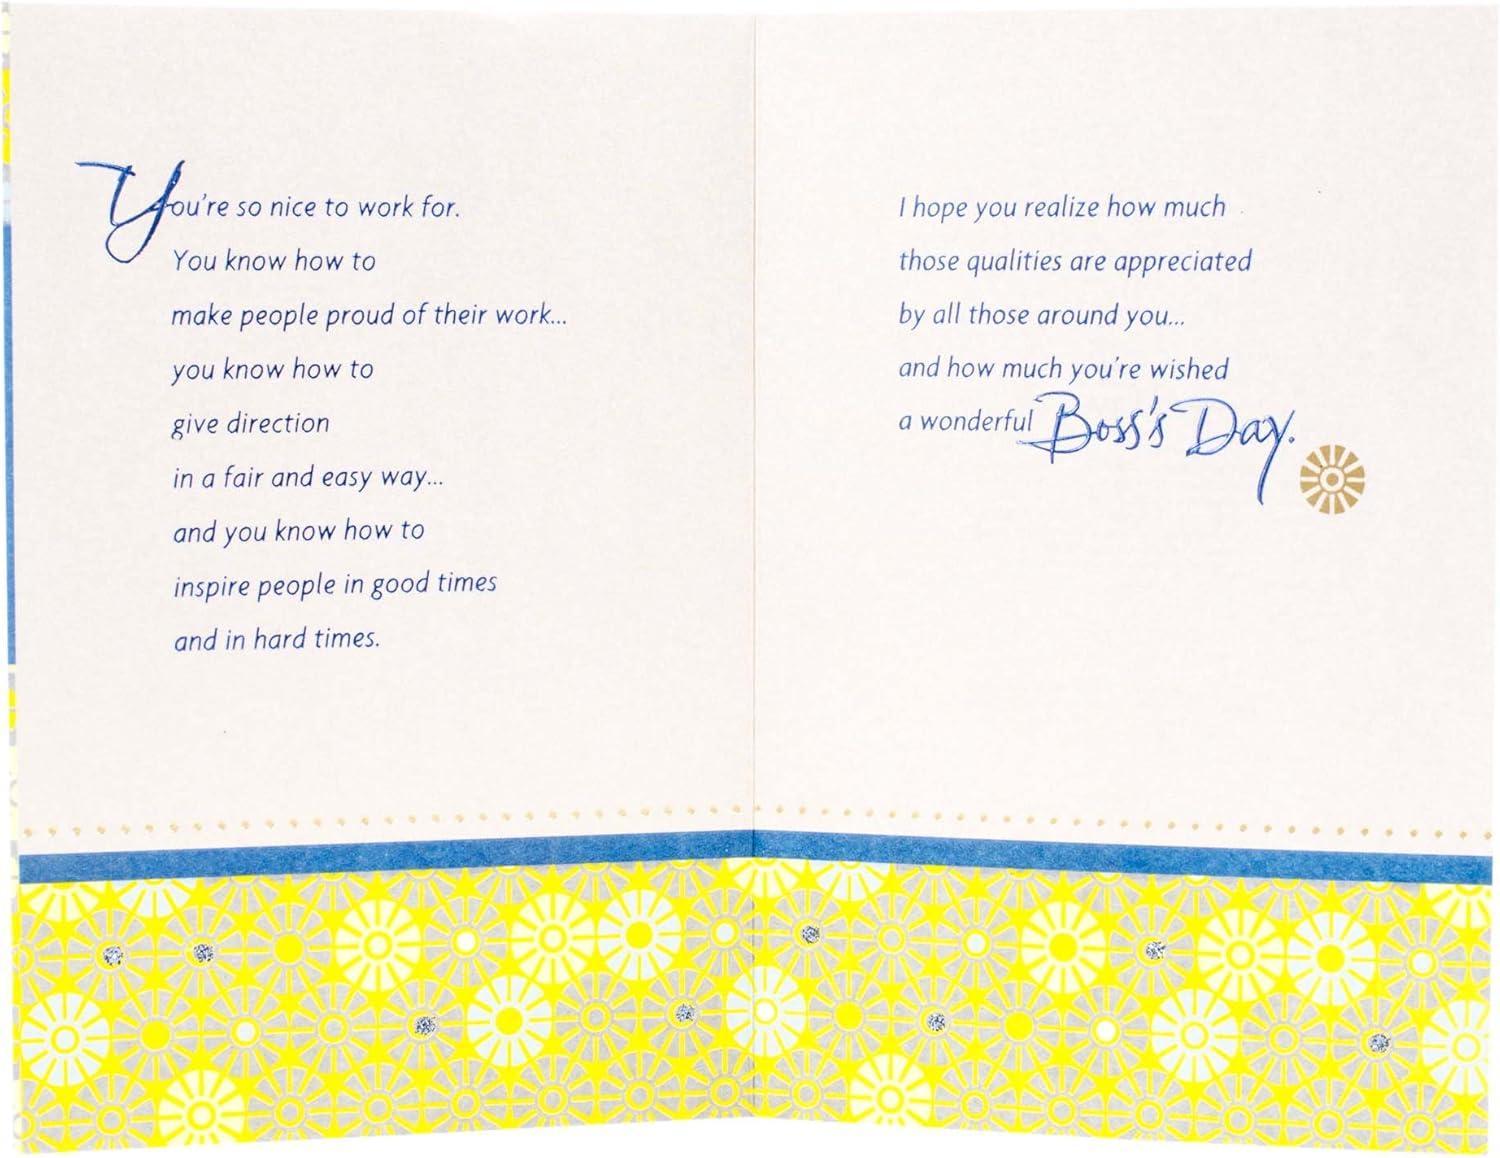 You're so nice to work for.
You know how to
make people proud of their work...
you know how to
give direction
in a fair and easy way...
and you know how to
inspire people in good times
and in hard times.
I hope you realize how much
those qualities are appreciated
by all those around you...
and how much you're wished
a wonderful Boss's Day.